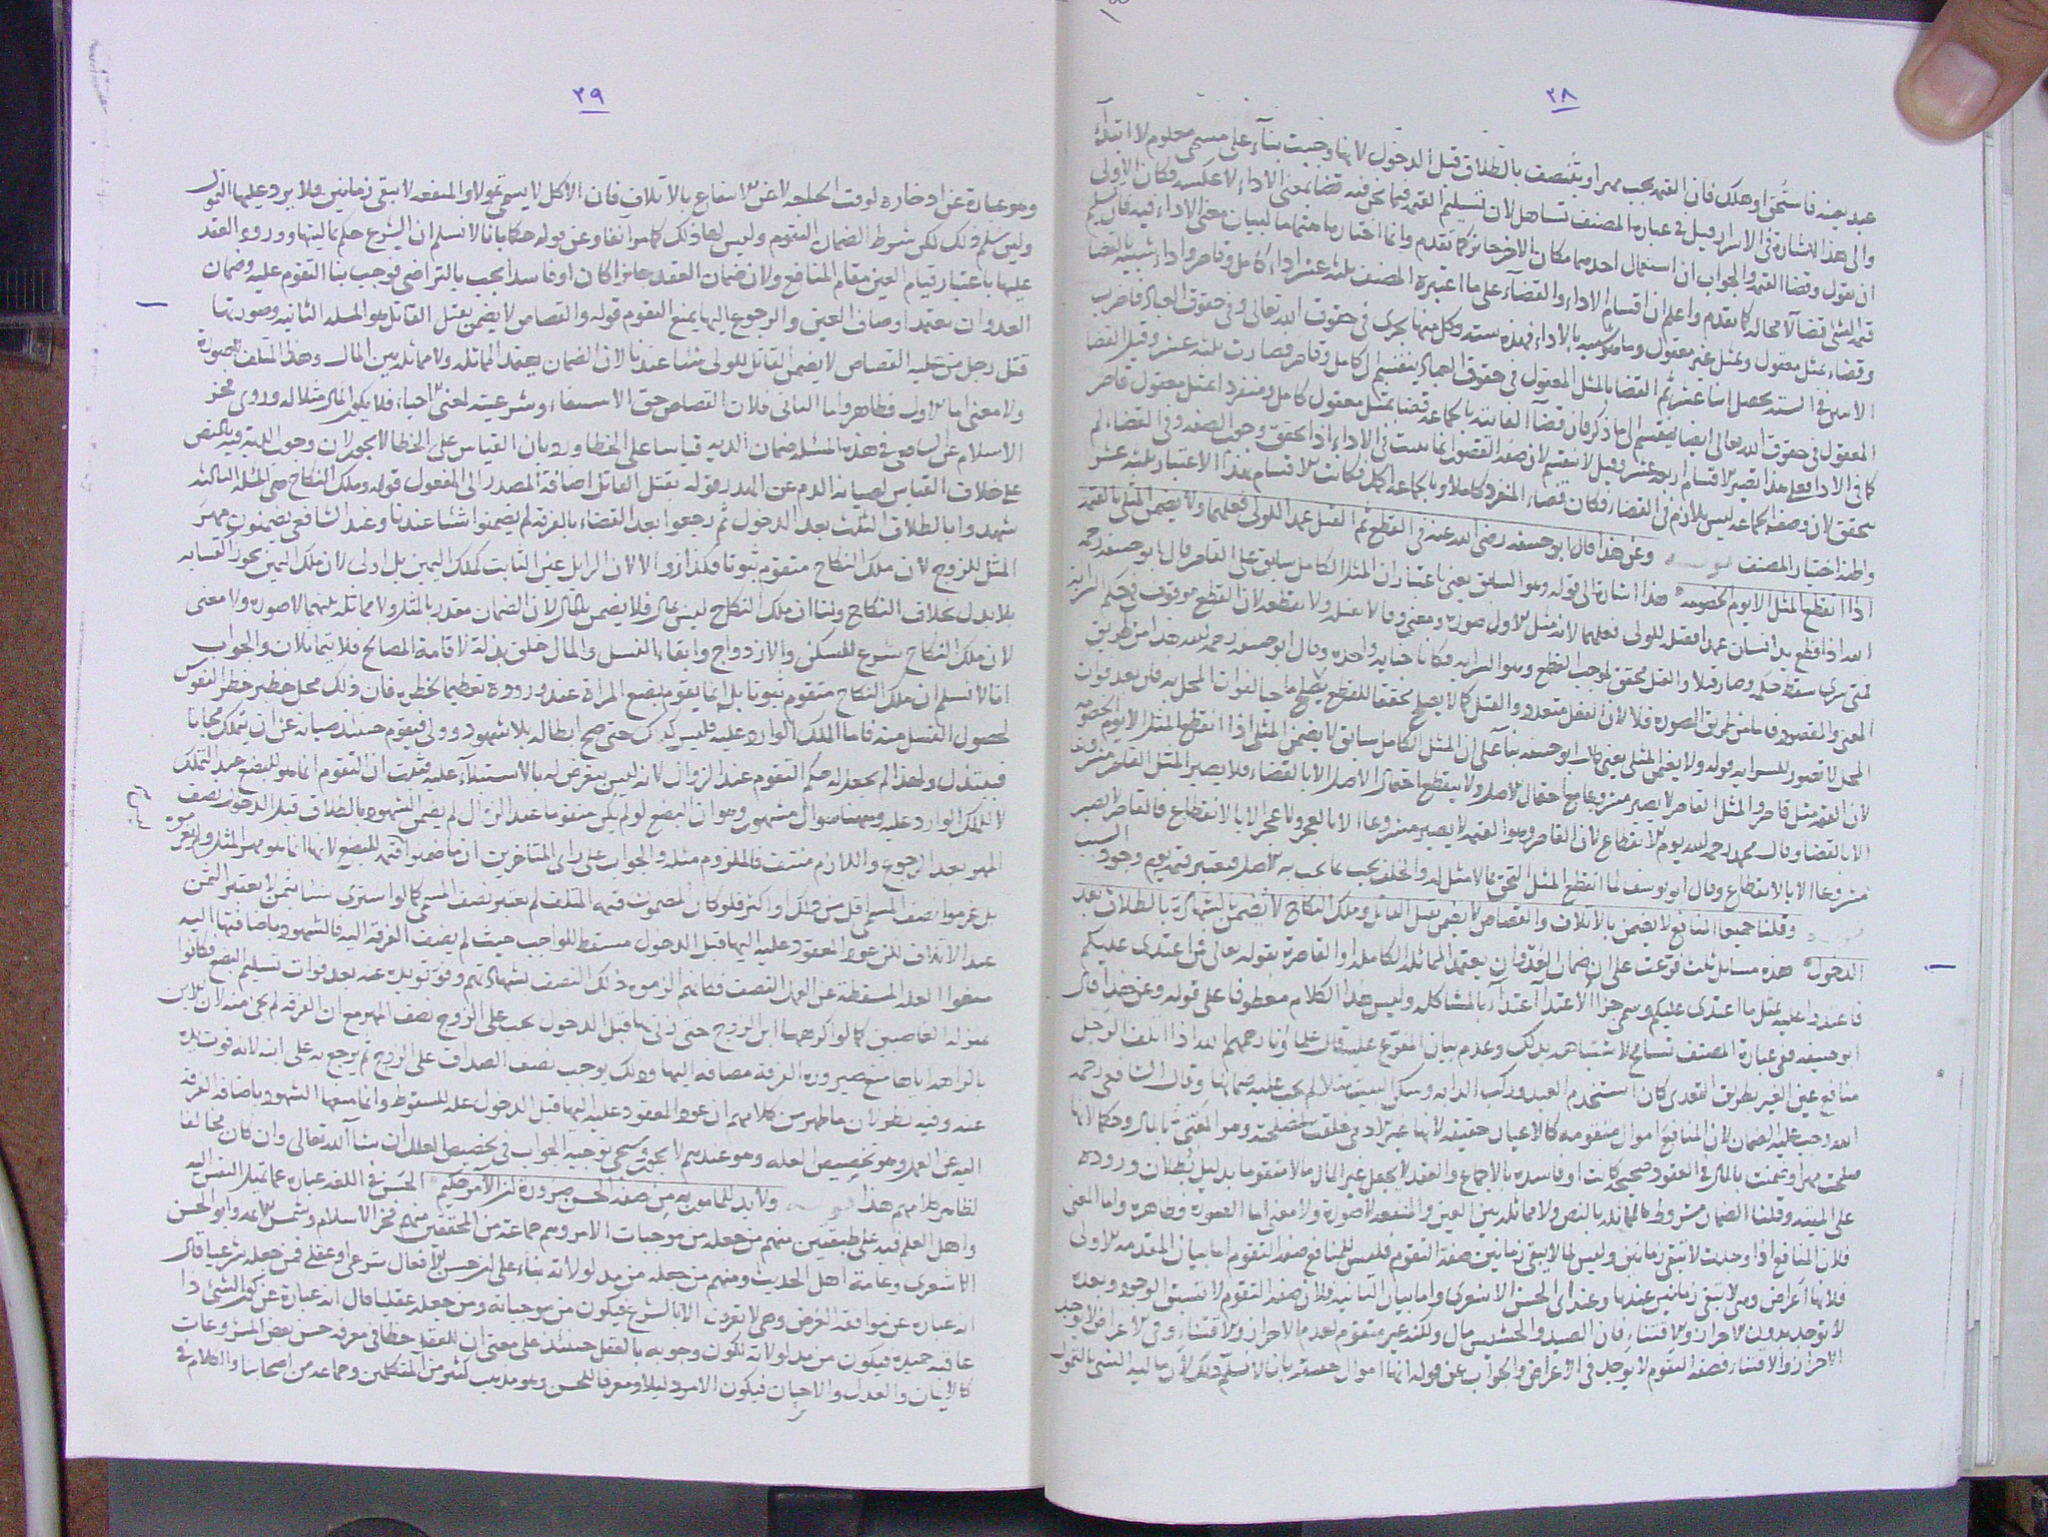 ٢٨
عبد بعينه فاستحق او هلك فان القيمة تجب مهرا وتتنصف بالطلاق قبل الدخول لانها وجبت بناء على مسمى معلوم لا ابتداء
والى هذا اشارة في الاسرار قيل في عبارة المصنف تساهل لان تسليم القيمة فيما نحن فيه قضاء بمعنى الاداء لا عكسه فكان الاولى
ان يقول وقضا القيمة والجواب ان استعمال احدهما مكان الاخر جائز كما تقدم وانما اختار هاهنا لبيان معنى الاداء فيه فان تسليم
قيمة الشئ قضاء لا محالة كما تقدم واعلم ان اقسام الاداء والقضاء على ما اعتبره المصنف ستة اداء كامل وقاصر واداء شبيه بالقضا
وقضاء بمثل معقول وبمثل غير معقول وما هو شبيه بالاداء فهذه ستة وكل منها يجرى في حقوق الله تعالى وفي حقوق العباد
في الستة يحصل اثنا عشر ثم القضا بالمثل المعقول في حقوق العباد ينقسم الى كامل وقاصر فصارت ثلثة عشر وقيل القضا
المعقول في حقوق الله تعالى ايضا ينقسم الى ما ذكر فان قضاء الفائتة بالجماعة قضا بمثل معقول كامل ومنفردا بمثل معقول قاصر
كما في الاداء فعلى هذا تصير الاقسام اربعة عشر وقيل لا ينقسم لان صفة القصور انما تثبت في الاداء اذا تحقق وجوب الصفة وفي القضاء لم
يتحقق لان وصف الجماعة ليس بلازم في القضاء فكان قضاء المنفرد كاملا وبالجماعة اكمل فكانت الاقسام بهذا الاعتبار ثلثة عشر
واظنه اختيار المصنف وعن هذا قال ابو حنيفة رضى الله عنه في القطع ثم القتل عمدا للولى فعلهما ولا يضمن المثلى بالقيمة
اذا انقطع المثل الا يوم الخصومة هذا اشارة الى قوله وهو السابق يعنى باعتبار ان المثل الكامل سابق على القاصر قال ابو حنيفة رحمه
الله اذا قطع يد انسان عمدا فقتل للولى فعلهما لانه مثل الاول صورة ومعنى وقالا يقتله ولا يقطعه لان القطع موقوف في حكم السراية
المحل لا تصور للسراية قوله ولا يضمن المثلى يعنى قال ابو حنيفة بناء على ان المثل الكامل سابق لا يضمن المثلى اذا انقطع المثل الا يوم الخصومة
لان القيمة مثل قاصر والمثل القاصر لا يصير مشروعا مع احتمال الاصل ولا ينقطع احتمال الاصل الا بالقضاء فلا يصير المثل القاصر مشروعا
الا بالقضا وقال محمد رحمه الله يوم الانقطاع لان القاصر وهو القيمة لا يصير مشروعا الا بالعجز ولا عجز الا بالانقطاع فالقاصر لا يصير
مشروعا الا بالانقطاع وقال ابو يوسف لما انقطع المثل التحق بما لا مثل له والخلف يجب بما يجب به الاصل فيعتبر قيمته يوم وجود السبب
وقلنا جميعا المنافع لا يضمن بالاتلاف والقصاص لا يضمن بقتل القاتل وملك النكاح لا يضمن بالشهادة بالطلاق بعد
الدخول هذه مسائل ثلث فرعت على ان ضمان العدوان يعتمد المماثلة الكاملة او القاصرة بقوله تعالى فمن اعتدى عليكم
فاعتدوا عليه بمثل ما اعتدى عليكم وسمى جزاء الاعتداء اعتداء بالمشاكلة وليس هذا الكلام معطوفا على قوله وعن هذا قال
ابو حنيفة ففى عبارة المصنف تسامح لاشتباهه بذلك وعدم بيان المفرع عليه قال علماؤنا رحمهم الله اذا اتلف الرجل
منافع عين الغير بطريق التعدى كان استخدم العبد وركب الدابة وسكن البيت مثلا لم يجب عليه ضمانها وقال الشافعى رحمه
الله وجب عليه الضمان لان المنافع اموال متقومة كالاعيان حقيقة لانها غير الادمى خلقت لمصلحته
صلحت مهرا وضمنت بالمال في العقود صحيحة كانت او فاسدة بالاجماع والعقد لا يجعل غير المال مالا متقوما بدليل بطلان وروده
على الميتة وقلنا الضمان مشروط بالمماثلة بالنص ولا مماثلة بين العين والمنفعة لا صورة ولا معنى اما الصورة فظاهرة واما المعنى
فلان المنافع اذا وجدت لا تبقى زمانين وليس لما لا يبقى زمانين صفة التقوم فليس للمنافع صفة التقوم اما بيان المقدمة الاولى
فلانها اعراض وهى لا تبقى زمانين عندنا وعند ابى الحسن الاشعرى واما بيان الثانية فلان صفة التقوم لا تسبق الوجود وبعده
لا توجد بدون الاحراز والاقتناء فان الصيد والحشيش مال ولكنه غير متقوم لعدم الاحراز والاقتناء وفى الاعراض لا يوجد
الاحراز والاقتناء فصفة التقوم لا يوجد في الاعراض والجواب عن قوله انها اموال حقيقة بان لا نسلم ذلك لان مالية الشئ بالتمول
٢٩
وهو عبارة عن ادخاره لوقت الحاجة لا عن الانتفاع بالاتلاف فان الاكل لا يسمى تمولا والمنفعة لا تبقى زمانين فلا يرد عليها التمول
ولئن سلم ذلك لكن شرط الضمان التقوم وليس لها ذلك كما مر انفا وعن قوله حكما بانا لا نسلم ان الشرع حكم بماليتها وورود العقد
عليها باعتبار قيام العين مقام المنافع ولان ضمان العقد جائزا كان او فاسدا يجب بالتراضى فوجب بنا التقوم عليه وضمان
العدوان يعتمد اوصاف العين والرجوع اليها يمنع التقوم قوله والقصاص لا يضمن بقتل القاتل هو المسئلة الثانية وصورتها
قتل رجل من عليه القصاص لا يضمن القاتل للولى شيئا عندنا لان الضمان يعتمد المماثلة ولا مماثلة بين المال وهذا المتلف لا صورة
ولا معنى اما الاول فظاهر واما الثانى فلان القصاص حق الاستيفاء وشرعيته لمعنى الاحياء فلا يكون المال مثلا له وروى فخر
الاسلام عن الشافعى في هذه المسئلة ضمان الدية قياسا على الخطا ورد بان القياس على الخطا لا يجوز لان وجوب الدية فيه بالنص
على خلاف القياس لصيانة الدم عن الهدر قوله بقتل القاتل اضافة المصدر الى المفعول قوله وملك النكاح هى المسئلة الثالثة
شهدوا بالطلاق الثلث بعد الدخول ثم رجعوا بعد القضاء بالفرقة لم يضمنوا شيئا عندنا وعند الشافعى يضمنون مهر
المثل للزوج لان ملك النكاح متقوم ثبوتا فكذا زوالا لان الزايل عين الثابت كملك اليمين بل اولى لان ملك اليمين يجوز اكتسابه
بلا بدل بخلاف النكاح ولنا ان ملك النكاح ليس بمال فلا يضمن بالمال لان الضمان مقدر بالمثل ولا مماثلة بينهما لا صورة ولا معنى
لان ملك النكاح شرع للسكن والازدواج وابقاء النسل والمال خلق بذلة لاقامة المصالح فلا يتماثلان والجواب
انا لا نسلم ان ملك النكاح متقوم ثبوتا بل انما يقوم بضع المراة عند وروده تعظيما لخطره فان ذلك محل خطير خطر النفوس
لحصول النسل منه فاما الملك الوارد عليه فليس كذلك حتى صح ابطاله بلا شهود وولى فيقوم حينئذ صيانة عن ان يتملك مجانا
فيبتذل ولهذا لم يجعل له حكم التقوم عند الزوال لانه ليس بتعرض له بالاستيلاء عليه فثبت ان التقوم انما هو للبضع عند التملك
لا للملك الوارد عليه وههنا سوال مشهور وهو ان البضع لو لم يكن متقوما عند الزوال لم يضمن الشهود بالطلاق قبل الدخول نصف
المهر بعد الرجوع واللازم منتف فالملزوم مثله والجواب على راى المتاخرين ان ما ضمنوا قيمة البضع لانها انما هو مهر المثل ولم يغرموه
بل غرموا نصف المسمى اقل من ذلك او اكثر فلو كان المضمون قيمة المتلف لم يعتبر نصف المسمى كما لو استرى شيئا بثمن لا يعتبر الثمن
عند الاتلاف لكن عود المعقود عليه اليها قبل الدخول مسقط للواجب حيث لم يضف الفرقة اليه فالشهود باضافتها اليه
منعوا العلة المسقطة عن العمل النصف فكانهم الزموه ذلك النصف بشهادتهم وفوتوا يده عنه بعد فوات تسليم البضع فكانوا
بمنزلة الغاصبين كما لو اكرهها ابن الزوج حتى زنى بها قبل الدخول يجب على الزوج نصف المهر مع ان الفرقة لم تجئ منه لان الابن
باكراهه اياها منع صيرورة الفرقة مضافة اليها وذلك يوجب نصف الصداق على الزوج ثم يرجع به على ابنه لانه فوت يده
عنه وفيه نظر لان ما ظهر من كلامهم ان عود المعقود عليه اليها قبل الدخول علة للسقوط وانما منعها الشهود باضافة الفرقة
اليه عن العمل وهو تخصيص العلة وهو عندهم لا يجوز وسيجئ توجيه الجواب في تخصيص العلل ان شا الله تعالى وان كان مخالفا
لظاهر كلامهم هذا ولا بد للمامور به من صفة الحسن ضرورة ان الامر حكيم الحسن في اللغة عبارة عما تميل النفس اليه
واهل العلم فيه على طبقتين منهم من جعله من موجبات الامر وهم جماعة من المحققين منهم فخر الاسلام وشمس الائمة وابو الحسن
الاشعرى وعامة اهل الحديث ومنهم من جعله من مدلولاته بناء على ان حسن الافعال شرعى او عقلى فمن جعله شرعيا قال
انه عبارة عن موافقة الغرض وهى لا تعرف الا بالشرع فيكون من موجباته ومن جعله عقليا قال انه عبارة عن كون الشئ ذا
عاقبة حميدة فيكون من مدلولاته لكون وجوبه بالعقل حينئذ على معنى ان للعقل حظا في معرفة حسن بعض المشروعات
كالايمان والعدل والاحسان فيكون الامر دليلا ومعرفا للحسن وهو مذهب كثير من المتكلمين وجماعة من اصحابنا والكلام في